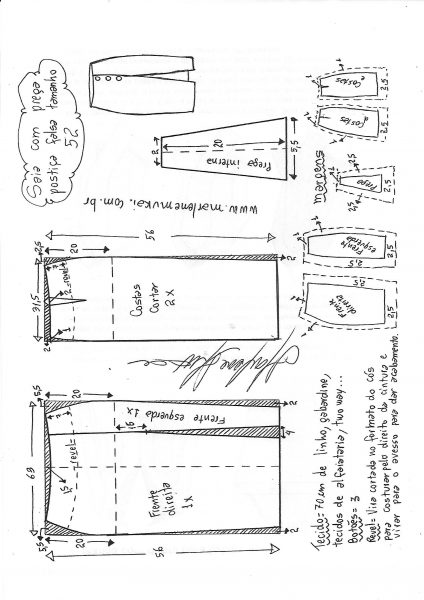 Saia com prega
postiça falsa tamanho
52
www.marlenemukai.com.br
2
20
Prega interna
5,5
margens
1
Costas
2,5
1
Costas
2,5
2,5
Prega
2,5
2,5
1
Frente
esquerda
2,5
2,5
1
Frente
direita
2,5
56
2,5
20
31,5
2
revel
Costas
Cortar
2x
2
2
Marlene Mukai
69
5,5
20
Frente esquerda 1x
15
revel
1,5
Frente
direita
1x
2
4
2
5,5
20
56
Tecido= 70 cm de linho, gabardine,
tecidos de alfaiataria, two way...
Botões= 3
Revel= Vira cortada no formato do cós
para costurar pelo direito da cintura e
virar para o avesso para dar acabamento.